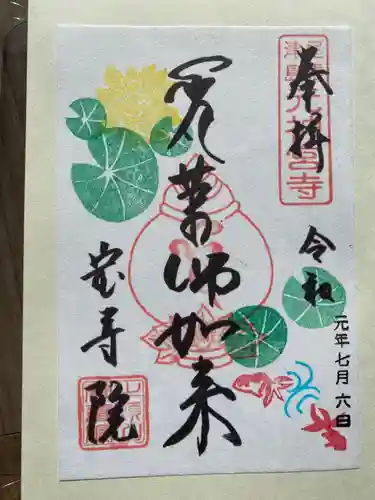 奉拝
令和
元年七月六日
薬師如来
宝寿院